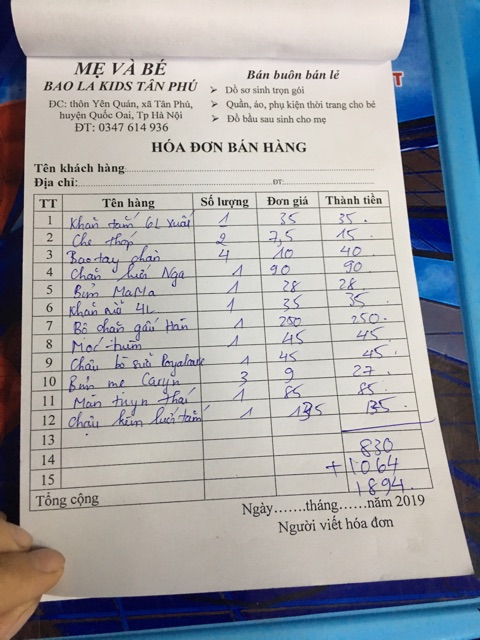 MẸ VÀ BÉ
BAO LA KIDS TÂN PHÚ
ĐC: thôn Yên Quán, xã Tân Phú,
huyện Quốc Oai, Tp Hà Nội
ĐT: 0347 614 936
Bán buôn bán lẻ
➢ Đồ sơ sinh trọn gói
➢ Quần, áo, phụ kiện thời trang cho bé
➢ Đồ bầu sau sinh cho mẹ
HÓA ĐƠN BÁN HÀNG
Tên khách hàng
Địa chỉ: ĐT:
TT Tên hàng Số lượng Đơn giá Thành tiền
1 Khăn tắm 6L xuất 1 35 35
2 Che thóp 2 7,5 15
3 Bao tay chân 4 10 40
4 Chăn lưới Nga 1 90 90
5 Bỉm MaMa 1 28 28
6 Khăn sữa 4L 1 35 35
7 Bộ chăn gấu Hàn 1 250 250
8 1 45 45
9 Chậu 1 45 45
10 Bỉm mẹ Caryn 3 9 27
11 Màn tuyn Thái 1 85 85
12 Chậu kèm lưới tắm 1 135 135
13 830
14 +1064
15 1894
Tổng cộng
Ngày.......tháng......năm 2019
Người viết hóa đơn